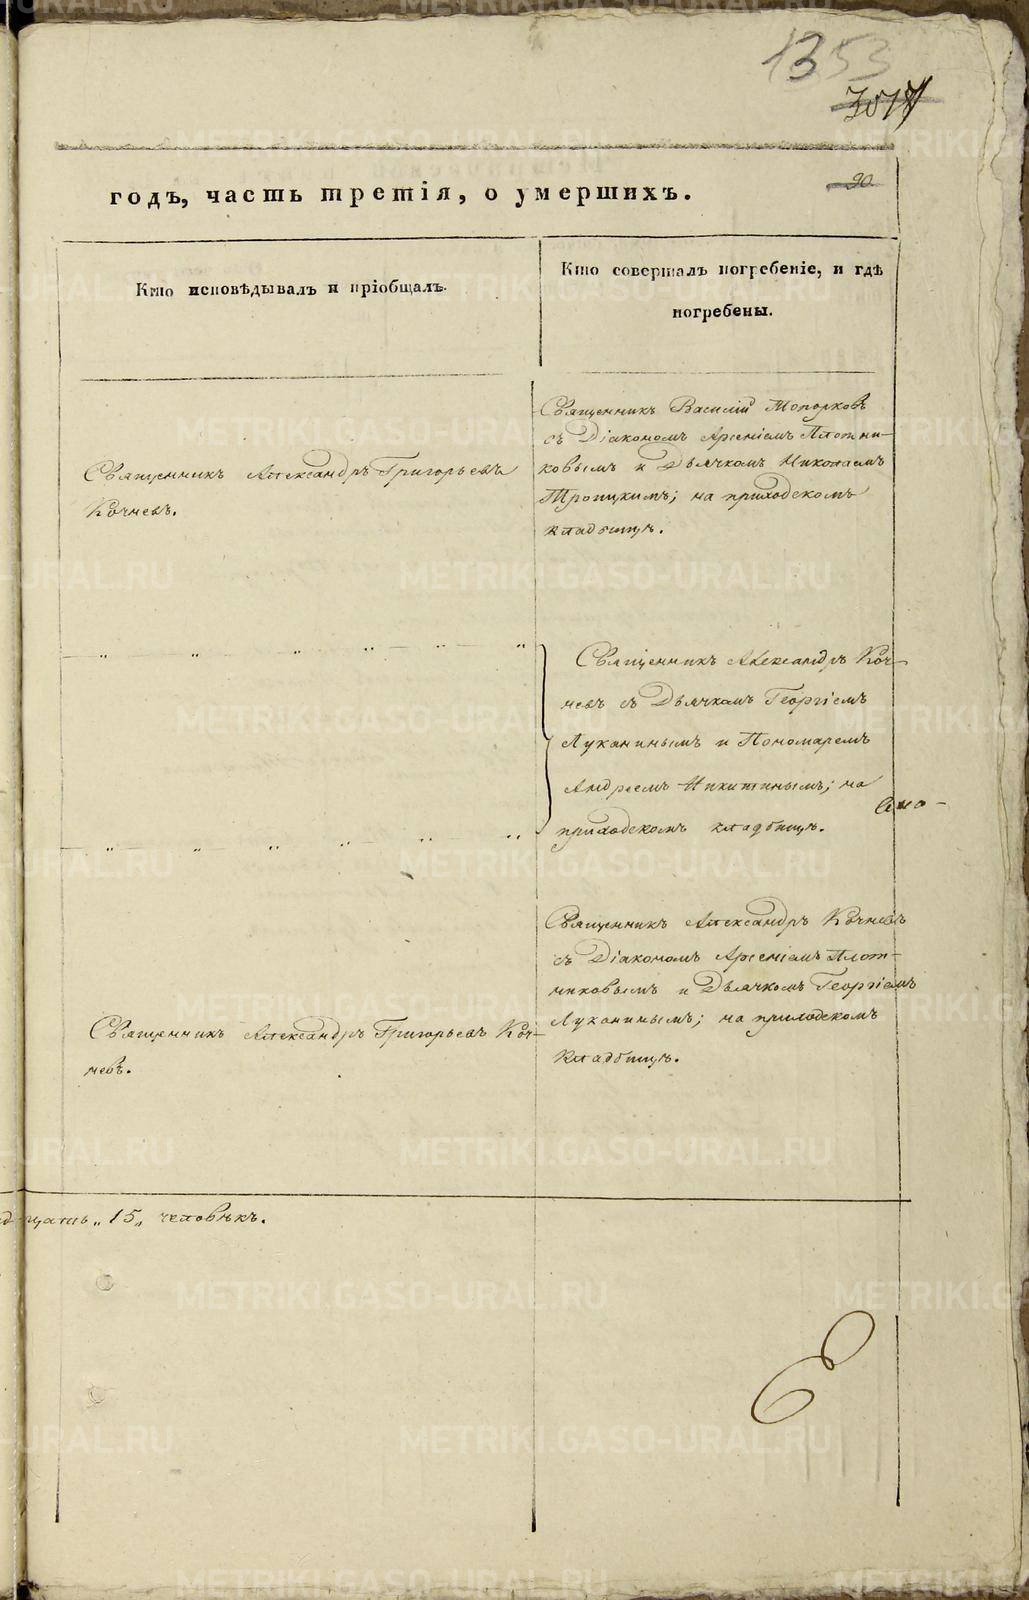 1353
90
годъ, часть третія, о умершихъ.
Кто исповѣдывалъ и пріобщалъ.
Кто совершалъ погребеніе, и гдѣ
погребены.
Священникъ Василій Топорковъ
съ Діакономъ Арсеніемъ Плотни-
ковымъ и Дьячкомъ Николаемъ
Троицкимъ; на приходскомъ
кладбищѣ.
Священникъ Александръ Григорьевъ
Кочневъ.
Священникъ Александръ Коч-
невъ съ Дьячкомъ Георгіемъ
Луканинымъ и Пономаремъ
Андреемъ Никитинымъ; на
приходскомъ кладбищѣ.
Священникъ Александръ Кочневъ
съ Діакономъ Арсеніемъ Плот-
никовымъ и Дьячкомъ Георгіемъ
Луканинымъ; на приходскомъ
кладбищѣ.
Священникъ Александръ Григорьевъ Коч-
невъ.
дцать „15„ человѣкъ.
METRIKI.GASO-URAL.RU